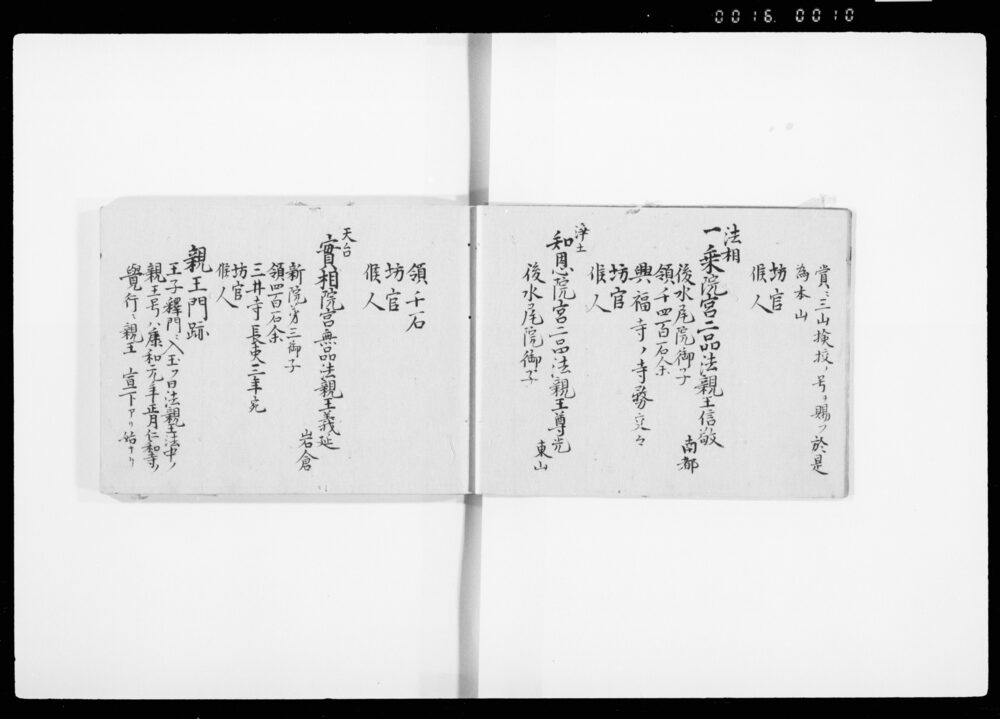 0016 0010
賞ニ三山検校ノ号ヲ賜フ於是
為本山
坊官
候人
法相
一乗院宮二品法親王信敬 南都
後水尾院御子
領千四百石余
興福寺ノ寺務交々
坊官
候人
浄土
知恩院宮二品法親王尊光 東山
後水尾院御子
領千石
坊官
候人
天台
實相院宮無品法親王義延 岩倉
新院第三御子
領四百石余
三井寺長吏三年宛
坊官
候人
親王門跡
王子釋門ニ入玉フ曰法親王法中ノ
親王号ハ康和元年正月仁和寺ノ
覺行ニ親王 宣下アリ始ナリ